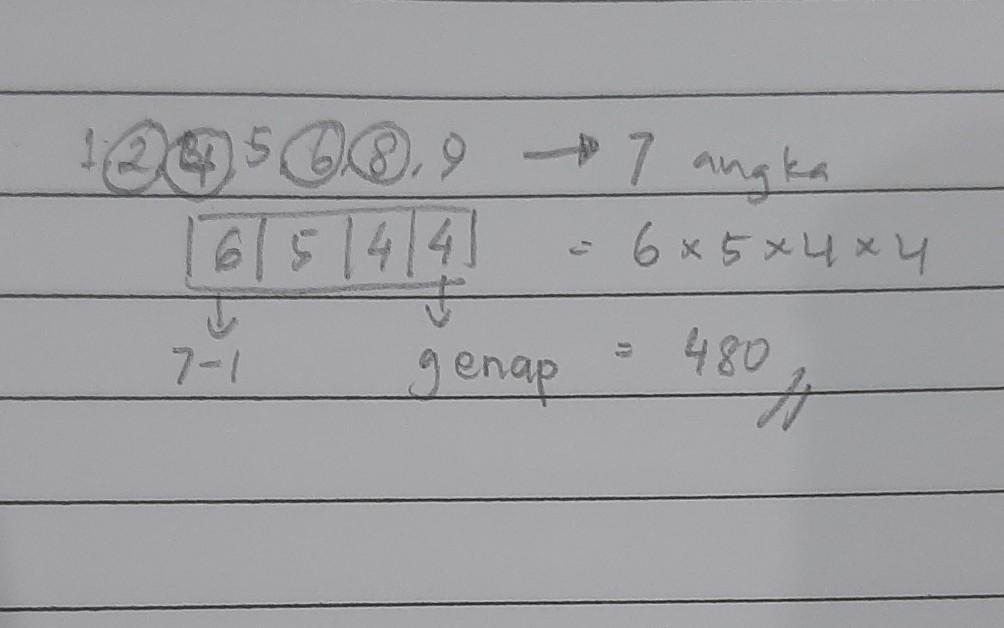 1 2 4, 5 6, 8, 9 → 7 angka
|6|5|4|4| = 6 × 5 × 4 × 4
↓ ↓
7-1 genap = 480 //